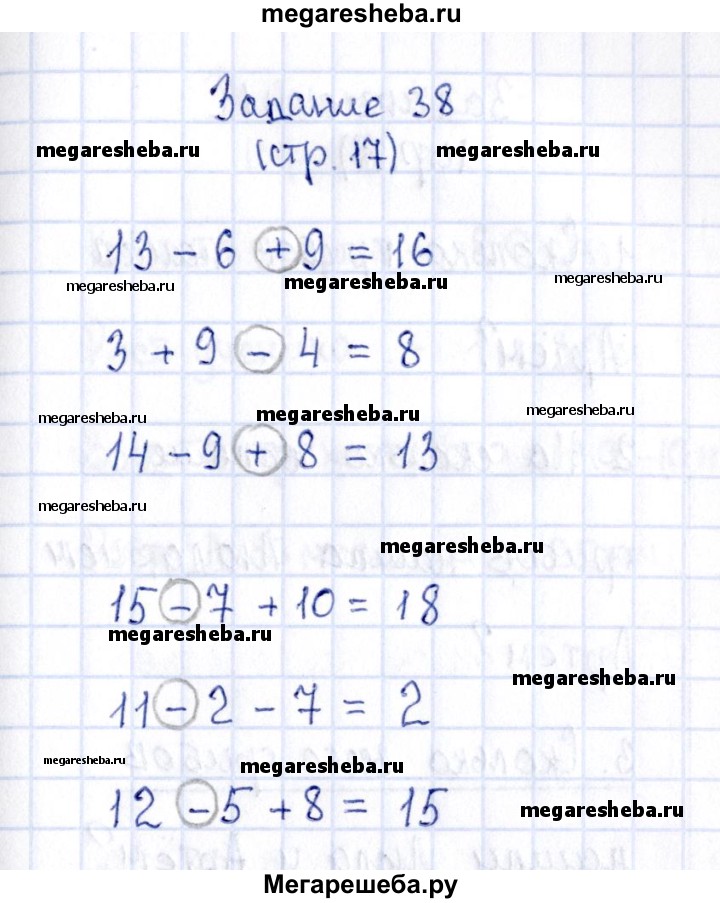 megaresheba.ru
Задание 38
megaresheba.ru (стр. 17) megaresheba.ru
13 - 6 + 9 = 16
megaresheba.ru megaresheba.ru megaresheba.ru
3 + 9 - 4 = 8
megaresheba.ru megaresheba.ru megaresheba.ru
14 - 9 + 8 = 13
megaresheba.ru
megaresheba.ru
15 - 7 + 10 = 18
megaresheba.ru
megaresheba.ru
11 - 2 - 7 = 2
megaresheba.ru megaresheba.ru
12 - 5 + 8 = 15
megaresheba.ru
Мегарешеба.ру